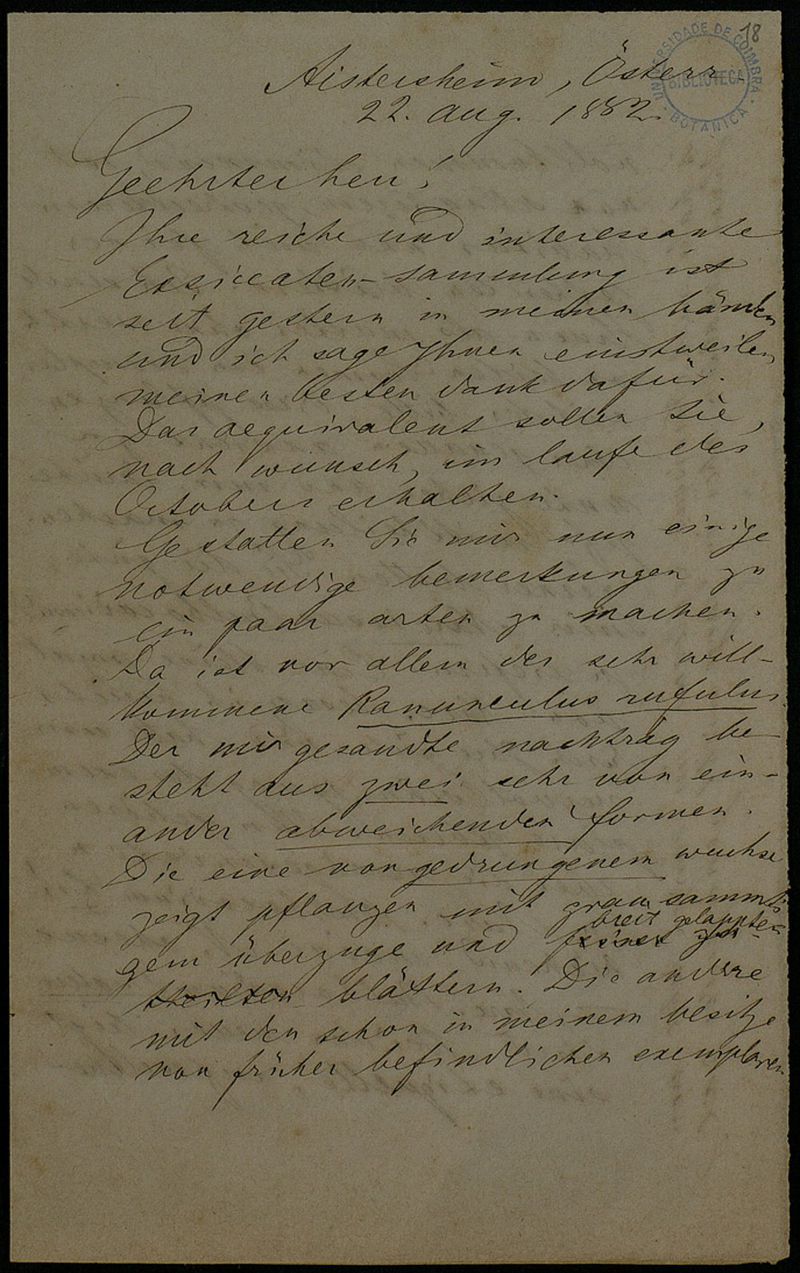 18
UNIVERSIDADE DE COIMBRA
BIBLIOTECA
BOTANICA
Aistersheim, Österr.
22. Aug. 1882.
Geehrter herr!
Ihre reiche und interessante
Exsiccaten-sammlung ist
seit gestern in meinen händen
und ich sage Ihnen einstweilen
meinen besten dank dafür.
Das aequivalent sollen Sie,
nach wunsch, im laufe des
Octobers erhalten.
Gestatten Sie mir nun einige
notwendige bemerkungen zu
ein paar arten zu machen.
Da ist vor allem der sehr will-
kommene Ranunculus rufulus.
Der mir gesandte nachtrag be-
steht aus zwei sehr von ein-
ander abweichenden formen.
Die eine von gedrungenem wuchse
zeigt pflanzen mit grau sammti-
breit gelappten
gem überzuge und feiner zer-
theilten blättern. Die andere
mit den schon in meinem besitze
von früher befindlichen exemplaren